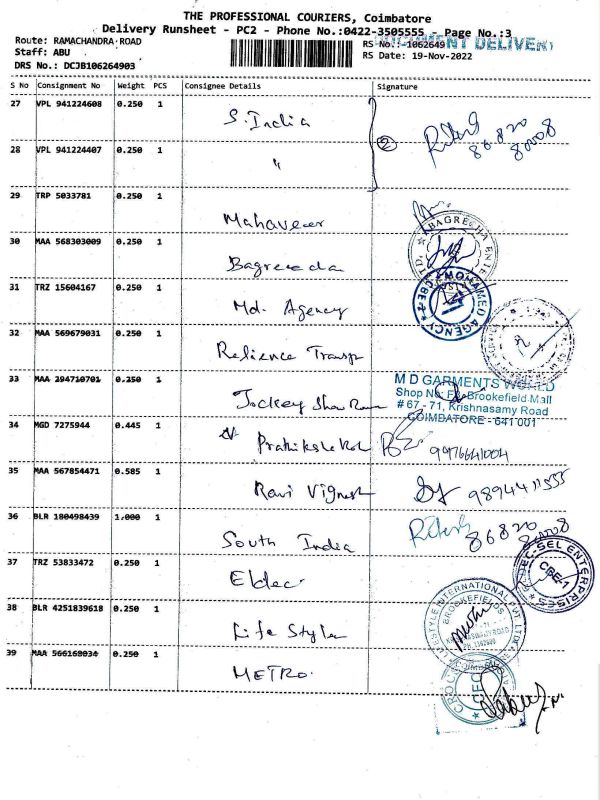 THE PROFESSIONAL COURIERS, Coimbatore
Delivery Runsheet - PC2 - Phone No.:0422-3505555 - Page No.:3
Route: RAMACHANDRA ROAD
RS No.:-1062649
Staff: ABU
RS Date: 19-Nov-2022
DRS No.: DCJB106264903
S No Consignment No Weight PCS Consignee Details Signature
27 VPL 941224608 0.250 1 S. India
28 VPL 941224407 0.250 1 "
2
86820
80008
29 TRP 5033781 0.250 1 Mahaveer
30 MAA 568303009 0.250 1
BAGRECHA ENTE
31 TRZ 15604167 0.250 1 Md. Agency
MOHAMED AGENCY
CBE-1
32 MAA 569679031 0.250 1 Relience Transp
33 MAA 294710701 0.250 1 Jockey
M D GARMENTS WORLD
Brookefield Mall
# 67 - 71, Krishnasamy Road
COIMBATORE - 641 001
34 MGD 7275944 0.445 1
9976641004
35 MAA 567854471 0.585 1 Ravi Vignesh
36 BLR 180498439 1.000 1 South India
86820
80008
37 TRZ 53833472 0.250 1 Eldec
ELDEC-SEL ENTERPRISES
CBE-1
38 BLR 4251839618 0.250 1 Life Style
LIFESTYLE INTERNATIONAL PVT. LTD
BROOKEFIELDS
39 MAA 566168034 0.250 1 METRO